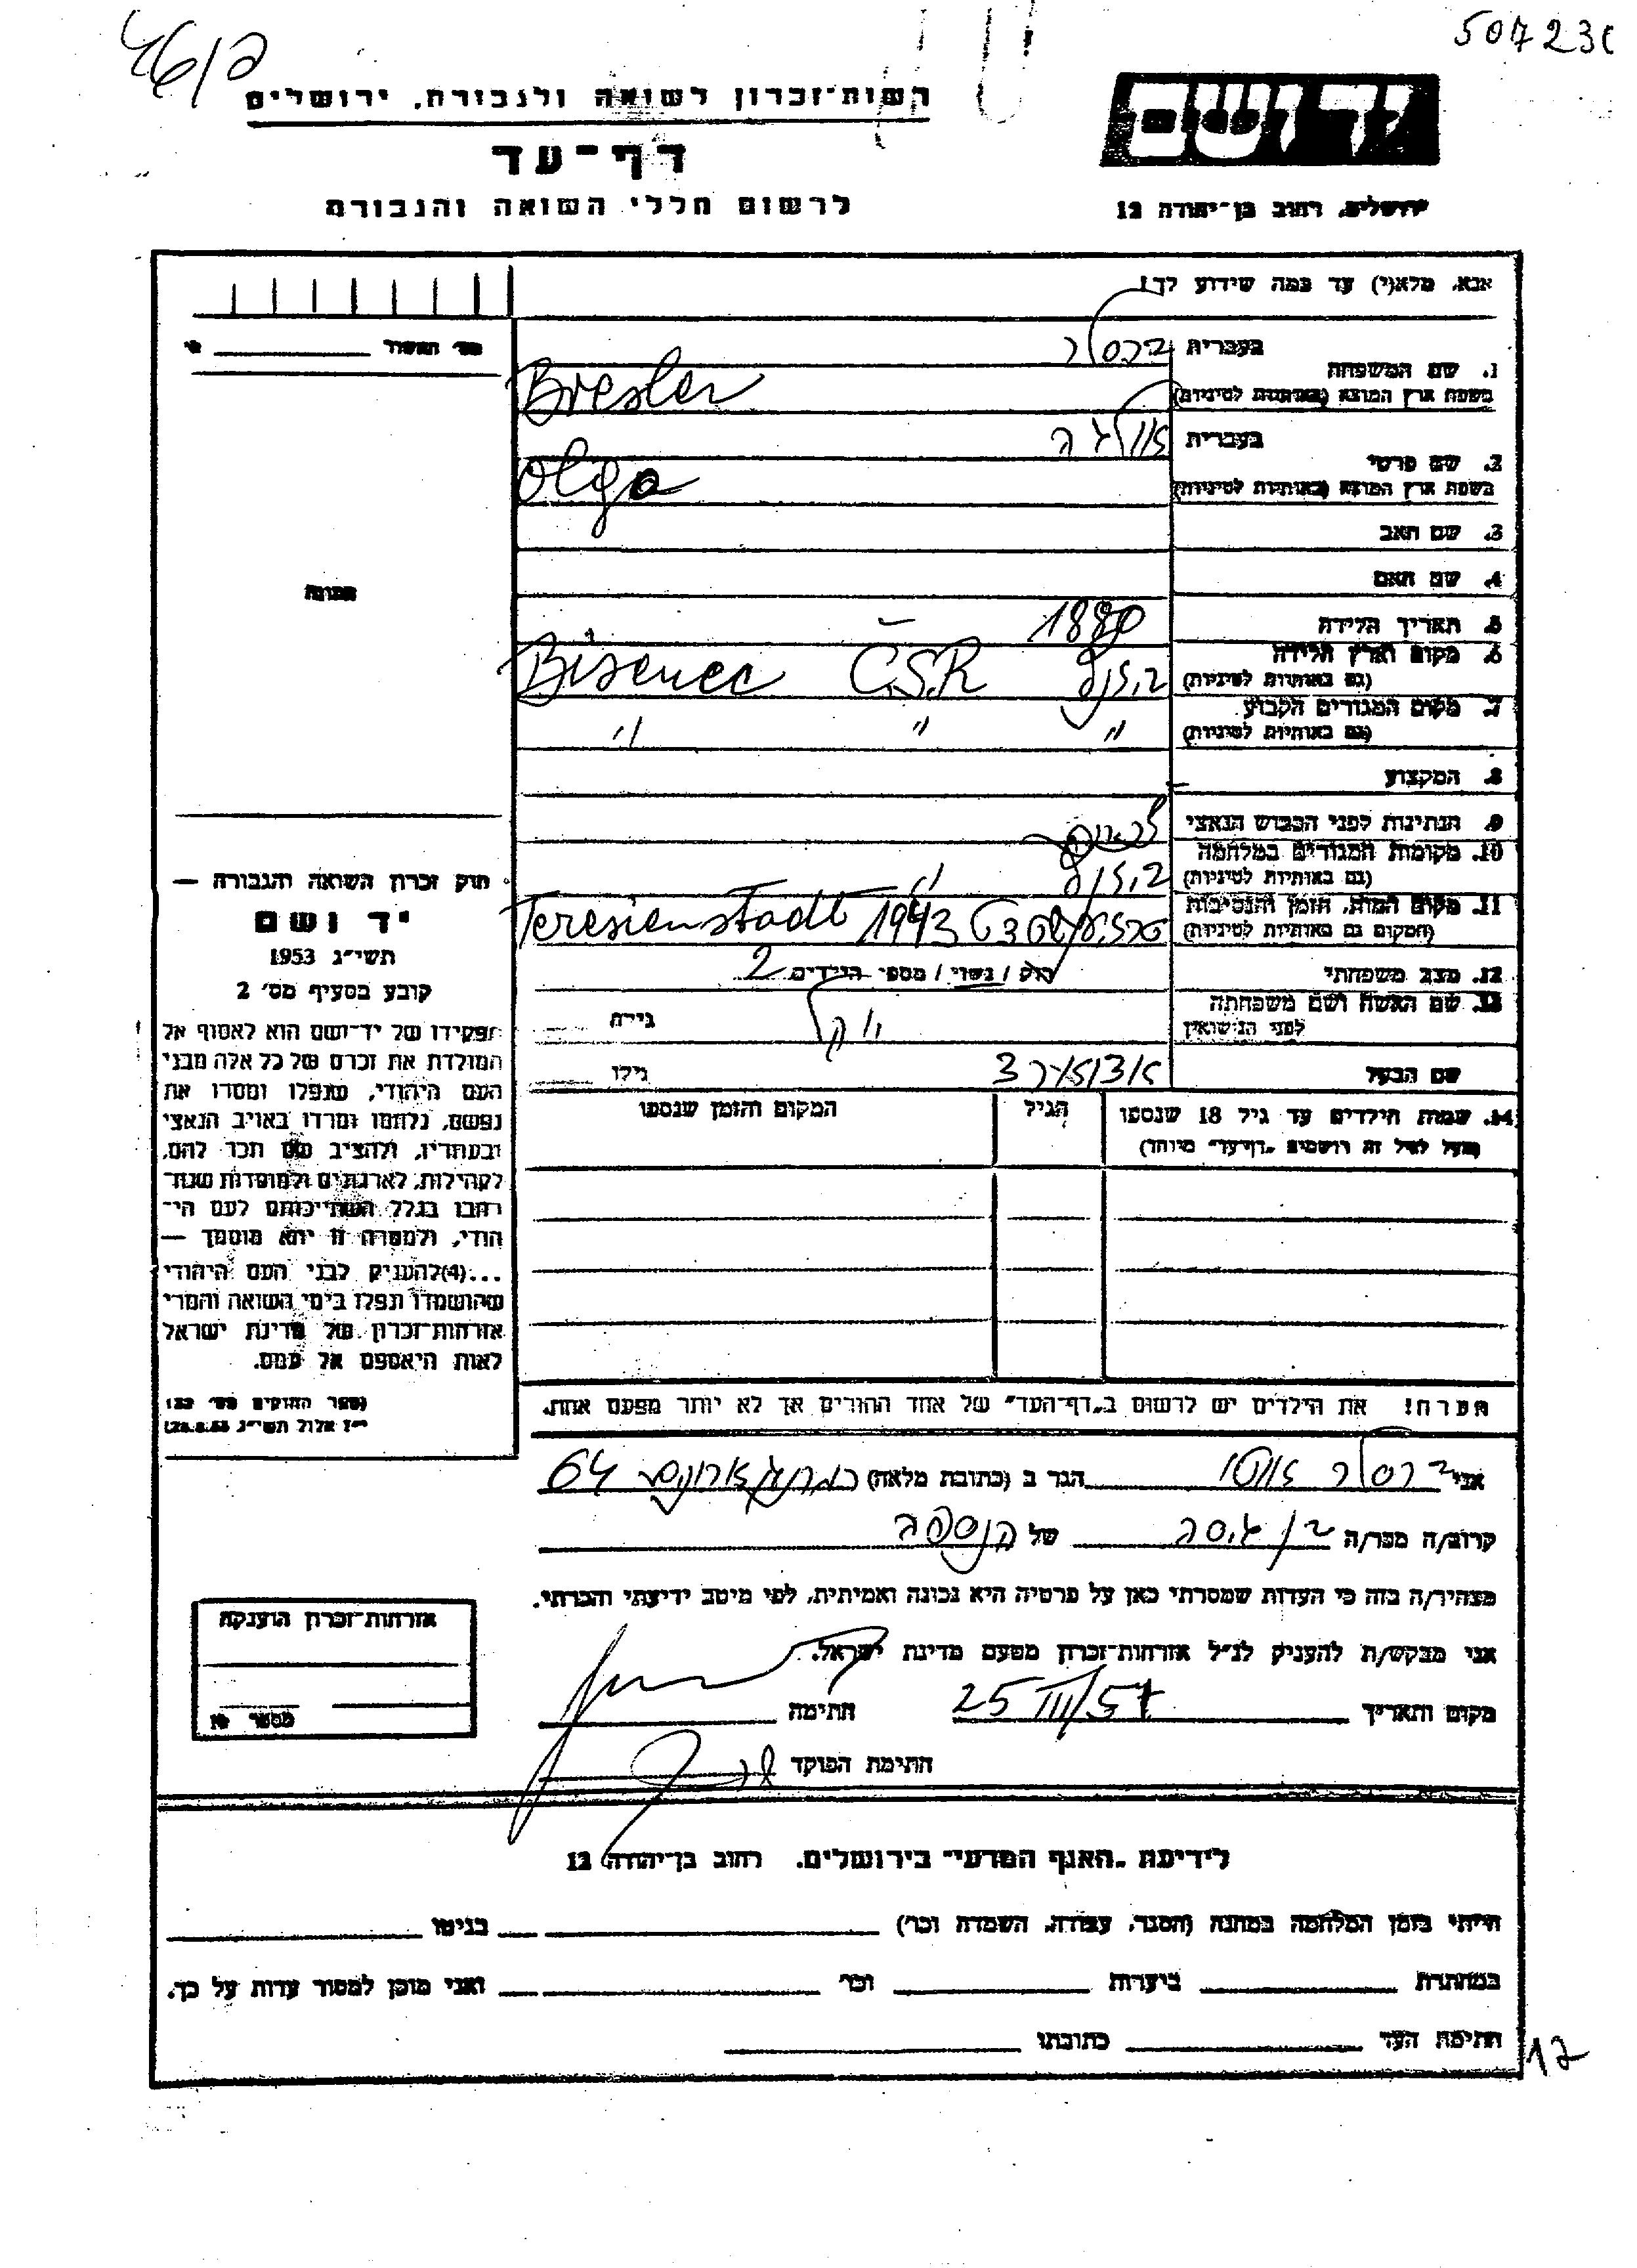 507230
46/2
יד ושם
רשות-זכרון לשואה ולגבורה, ירושלים
דף-עד
לרשום חללי השואה והגבורה
ירושלים, רחוב בן-יהודה 12
אנא, מלא(י) עד כמה שידוע לך!
1. שם המשפחה
בעברית ברסלר
בשפת ארץ המוצא (באותיות לטיניות) Bresler
2. שם פרטי
בעברית אולגה
בשפת ארץ המוצא (באותיות לטיניות) Olga
3. שם האב
4. שם האם
5. תאריך הלידה 1880
6. מקום וארץ הלידה
(גם באותיות לטיניות) Bisenec Č.S.R
7. מקום המגורים הקבוע
(גם באותיות לטיניות) " " "
8. המקצוע
9. הנתינות לפני הכבוש הנאצי
10. מקומות המגורים במלחמה
(גם באותיות לטיניות)
11. מקום המות, הזמן והנסיבות
(המקום גם באותיות לטיניות) 1943 Teresienstadt
12. מצב משפחתי רוק / נשוי / מספר הילדים 2
13. שם האשה ושם משפחתה
לפני הנישואין גילה
שם הבעל גילו
14. שמות הילדים עד גיל 18 שנספו
(מעל לגיל זה רושמים "דף-עד" מיוחד)
הגיל
המקום והזמן שנספו
הערה! את הילדים יש לרשום ב"דף-העד" של אחד ההורים אך לא יותר מפעם אחת.
מס' האשור
תמונה
חוק זכרון השואה והגבורה —
יד ושם
תשי"ג 1953
קובע בסעיף מס' 2
תפקידו של יד-ושם הוא לאסוף אל
המולדת את זכרם של כל אלה מבני
העם היהודי, שנפלו ומסרו את
נפשם, נלחמו ומרדו באויב הנאצי
ובעוזריו, ולהציב שם וזכר להם,
לקהילות, לארגונים ולמוסדות שנח-
רבו בגלל השתייכותם לעם הי-
הודי, ולמטרה זו יהא מוסמך —
...(4) להעניק לבני העם היהודי
שהושמדו ונפלו בימי השואה והמרי
אזרחות-זכרון של מדינת ישראל
לאות היאספם אל עמם.
(ספר החוקים מס' 132
י"ז אלול תשי"ג 28.8.53)
אני ברסלר הגר ב (כתובת מלאה) 64
קרוב/ה מכר/ה של
מצהיר/ה בזה כי העדות שמסרתי כאן על פרטיה היא נכונה ואמיתית, לפי מיטב ידיעתי והכרתי.
אני מבקש/ת להעניק לנ"ל אזרחות-זכרון מטעם מדינת ישראל.
מקום ותאריך 25 III/57 חתימה
חתימת הפוקד
אזרחות-זכרון הוענקה
מספר
לידיעת "האגף המדעי" בירושלים, רחוב בן-יהודה 12
הייתי בזמן המלחמה במחנה (הסגר, עבודה, השמדה וכו') בגיטו
במחתרת ביערות וכו' ואני מוכן למסור עדות על כך.
חתימת העד כתובתו
12